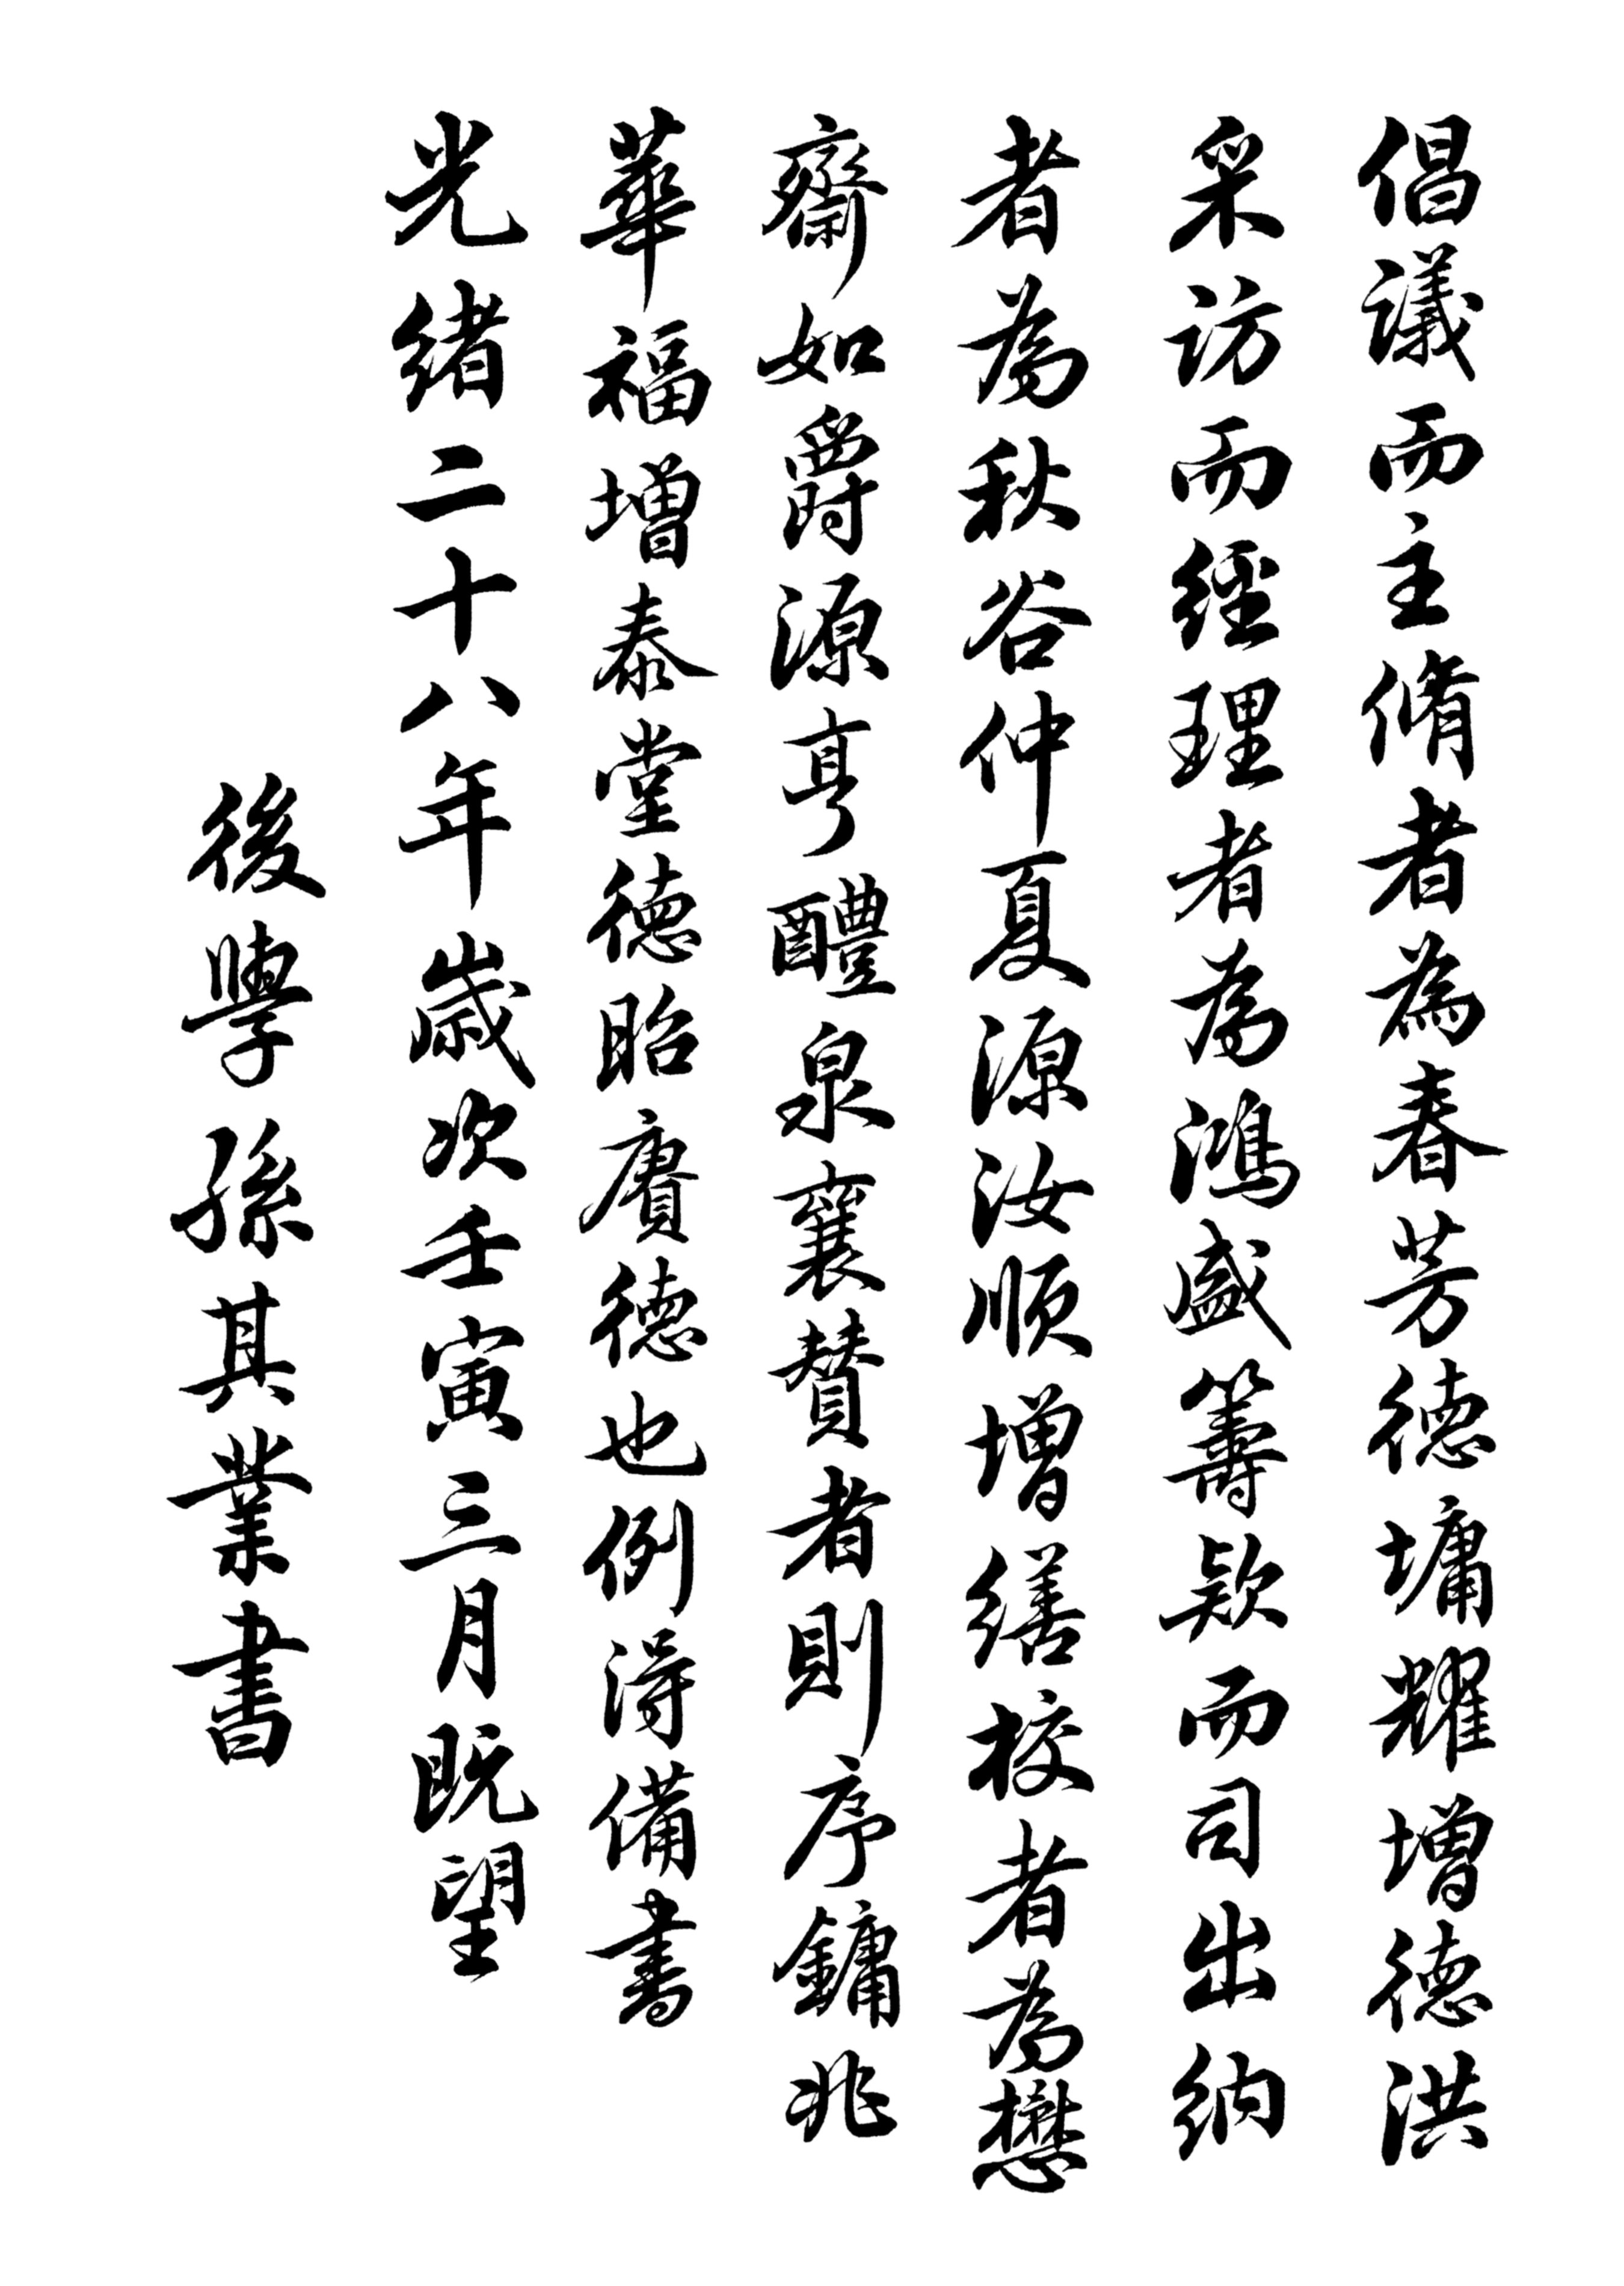 倡議而主脩者為春芳德墉耀增德洪
采訪而經理者為鴻盛籌款而司出納
者為秋谷仲夏源汝順增繕校者為懋
齋如爵源亨醴泉襄贊者則序鏞兆
華福增泰堂德昭賡德也例得備書
光緒二十八年歲次壬寅三月既望
後學孫其業書